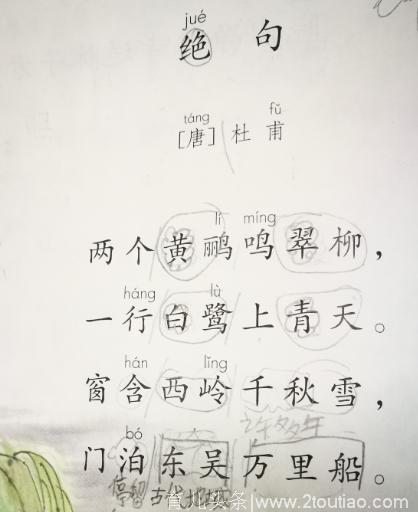 jué
绝句
táng fǔ
[唐] 杜甫
lí míng
两个黄鹂鸣翠柳，
háng lù
一行白鹭上青天。
hán lǐng
窗含西岭千秋雪，
bó
门泊东吴万里船。
停留 古代
头条@www.2toutiao.com